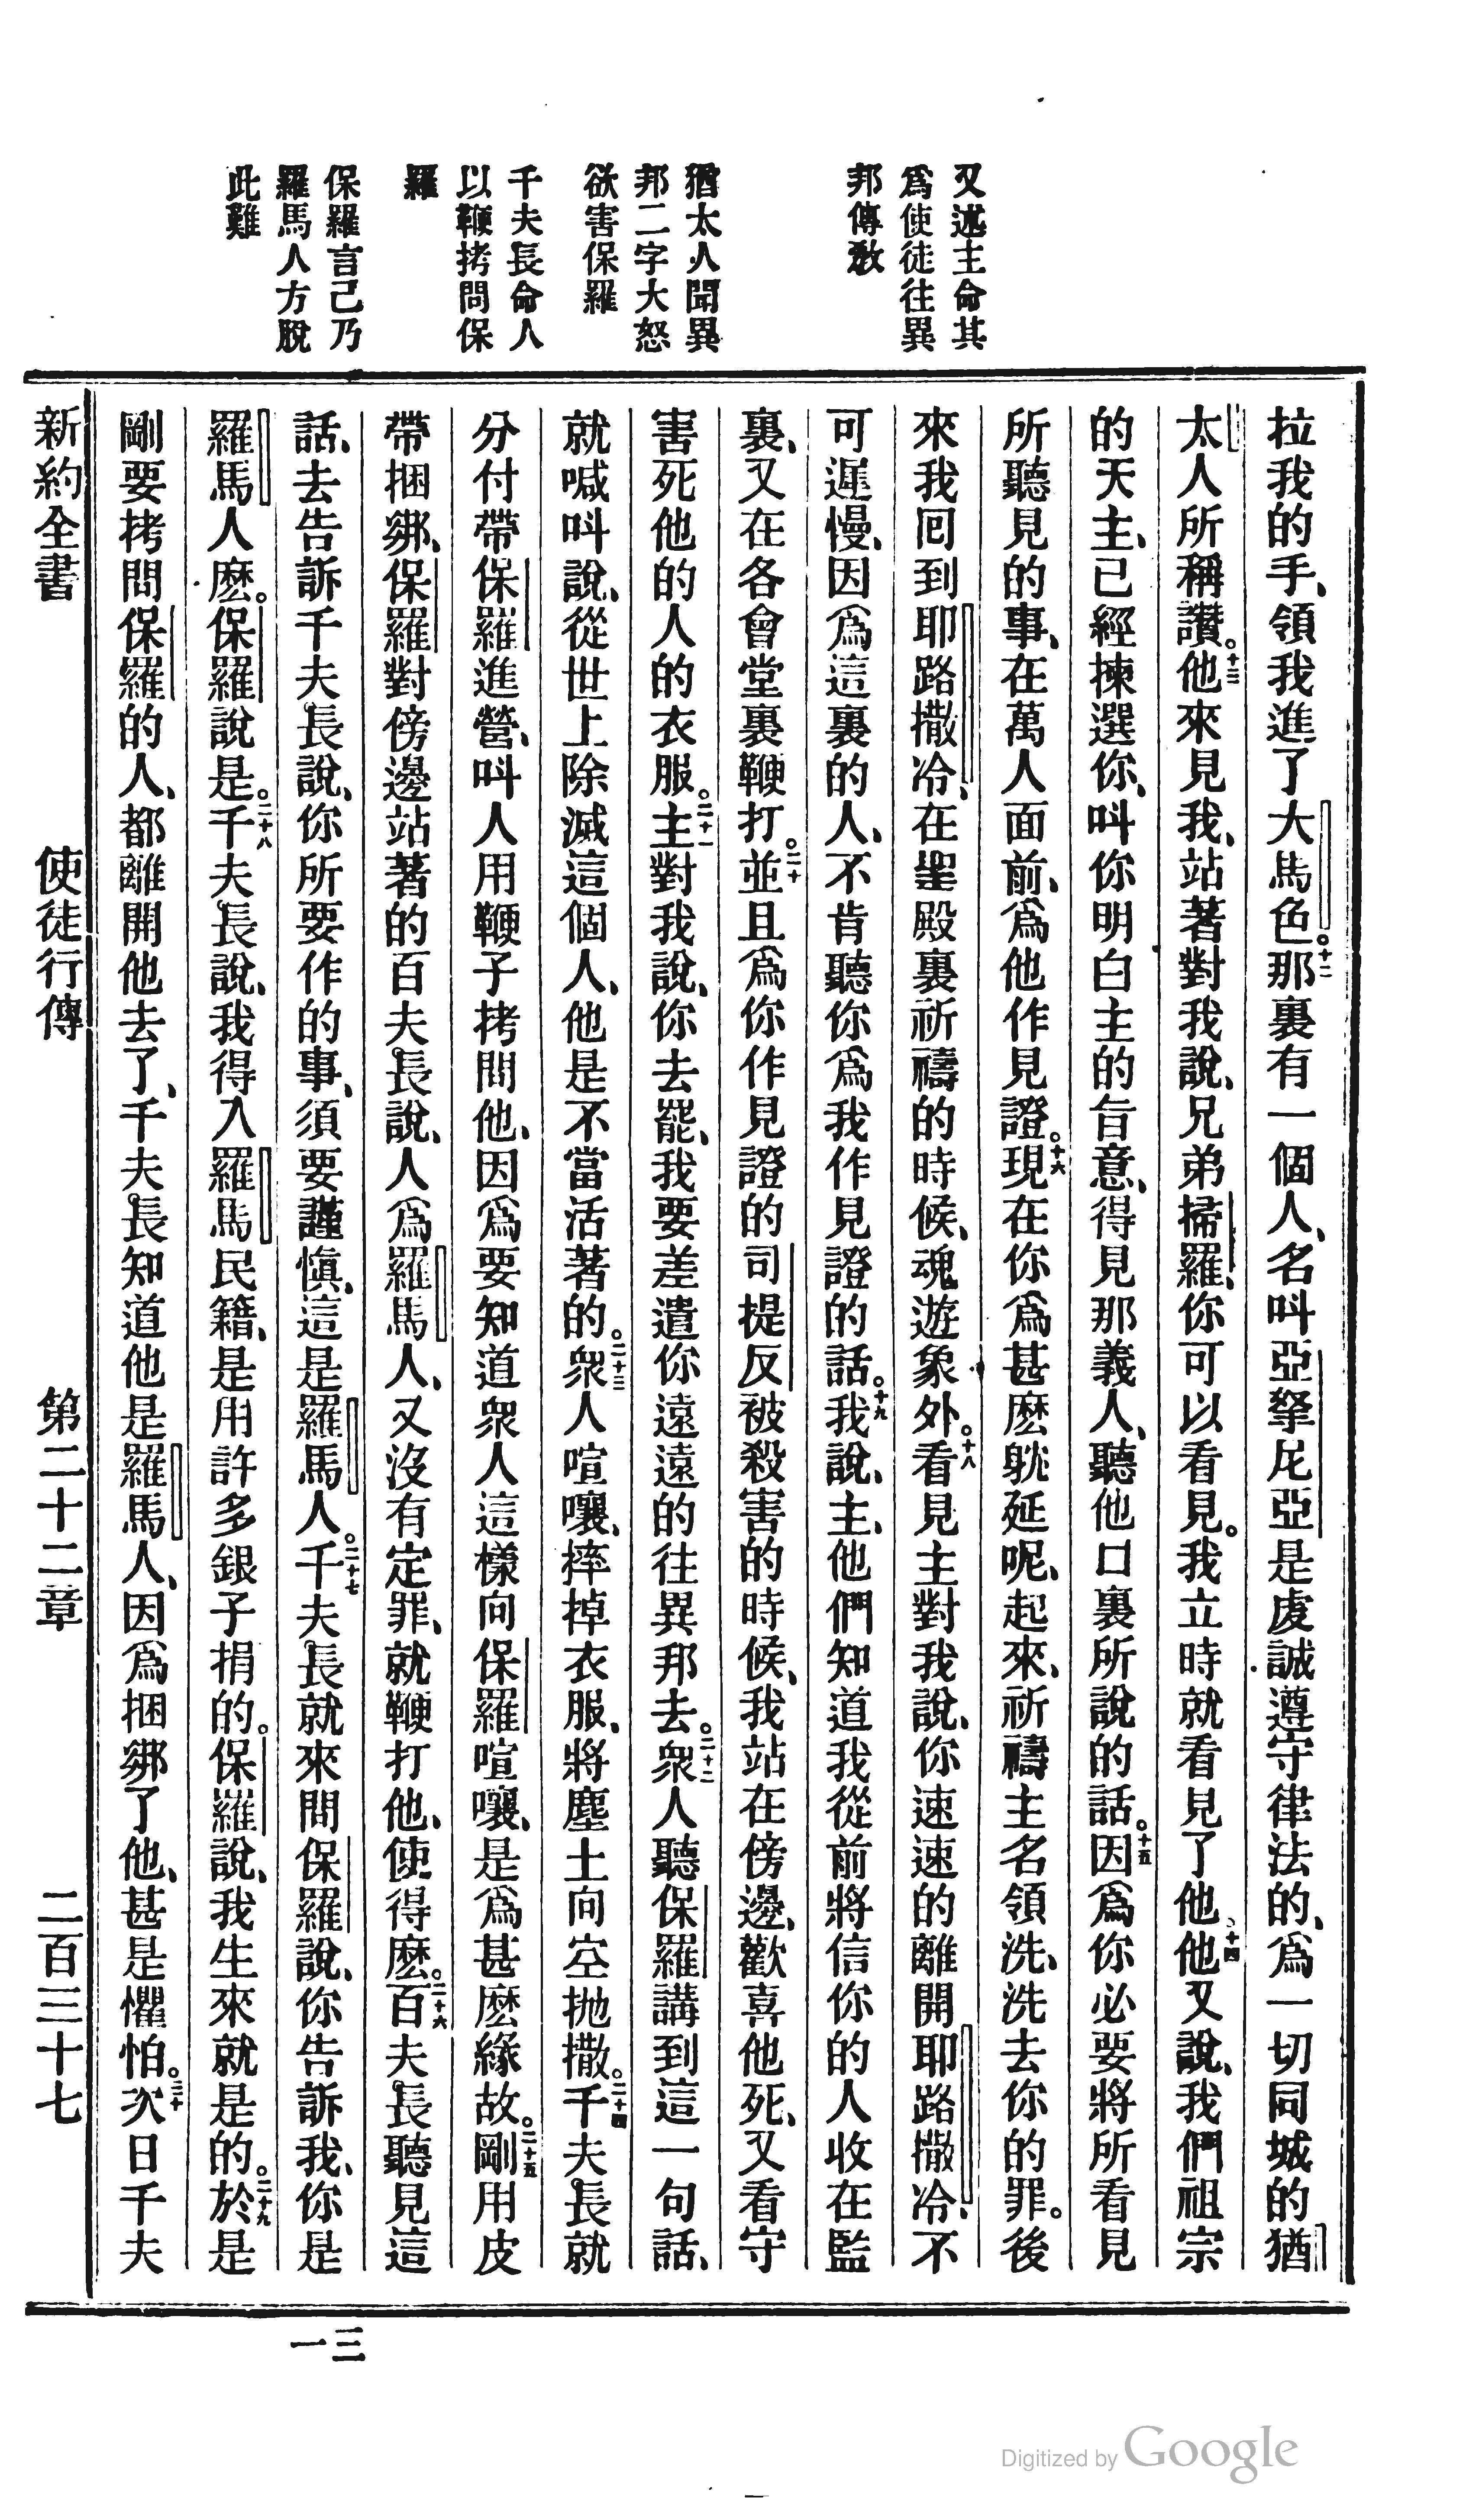 又述主命其
爲使徒往異
邦傳敎
猶太人聞異
邦二字大怒
欲害保羅
千夫長命人
以鞭拷問保
羅
保羅言己乃
羅馬人方脫
此難
拉我的手、領我進了大馬色。十二那裏有一個人、名呌亞拏尼亞是虔誠遵守律法的、爲一切同城的猶
太人所稱讚。十三他來見我、站著對我說、兄弟掃羅、你可以看見。我立時就看見了他。十四他又說、我們祖宗
的天主、已經揀選你、呌你明白主的旨意、得見那義人、聽他口裏所說的話。十五因爲你必要將所看見
所聽見的事、在萬人面前、爲他作見證。十六現在你爲甚麽躭延呢、起來、祈禱主名領洗、洗去你的罪。後
來我囘到耶路撒冷、在聖殿裏祈禱的時候、魂遊象外。十八看見主對我說、你速速的離開耶路撒冷、不
可遲慢、因爲這裏的人、不肯聽你爲我作見證的話。十九我說、主、他們知道我從前將信你的人收在監
裏、又在各會堂裏鞭打。二十並且爲你作見證的司提反被殺害的時候、我站在傍邊、歡喜他死、又看守
害死他的人的衣服。二十一主對我說、你去罷、我要差遣你遠遠的往異邦去。二十二衆人聽保羅講到這一句話、
就喊呌說、從世上除滅這個人、他是不當活著的。二十三衆人喧嚷、摔掉衣服、將塵土向空抛撒。二十四千夫長就
分付帶保羅進營、呌人用鞭子拷問他、因爲要知道衆人這樣向保羅喧嚷、是爲甚麽緣故。二十五剛用皮
帶捆綁、保羅對傍邊站著的百夫長說、人爲羅馬人、又沒有定罪、就鞭打他、使得麽。二十六百夫長聽見這
話、去告訴千夫長說、你所要作的事、須要謹愼、這是羅馬人。二十七千夫長就來問保羅說、你告訴我、你是
羅馬人麽。保羅說是。二十八千夫長說、我得入羅馬民籍、是用許多銀子捐的。保羅說、我生來就是的。二十九於是
剛要拷問保羅的人、都離開他去了、千夫長知道他是羅馬人、因爲捆綁了他、甚是懼怕。三十次日千夫
新約全書 使徒行傳 第二十二章 二百三十七
三一
Digitized by Google